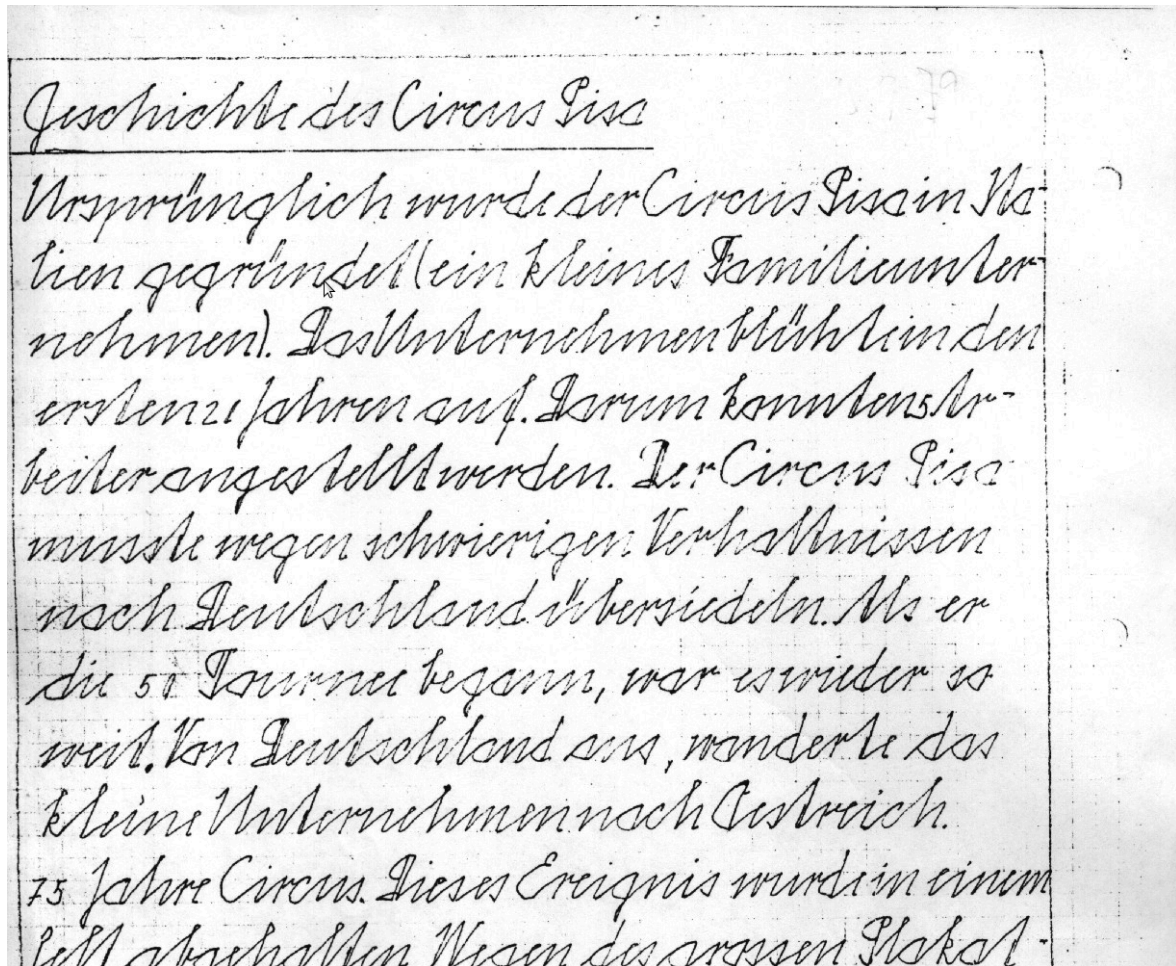 Geschichte des Circus Pisa
Ursprünglich wurde der Circus Pisa in Ita-
lien gegründet (ein kleines Familieunter-
nehmen). Das Unternehmen blühte in den
ersten Jahren auf. Darum konnten 5 Ar-
beiter angestellt werden. Der Circus Pisa
musste wegen schwierigen Verhältnissen
nach Deutschland übersiedeln. Als er
die Tournee begann, war es wieder so
weit. Von Deutschland aus, wanderte das
kleine Unternehmen nach Oestreich.
75 Jahre Circus. Dieses Ereignis wurde in einem
Zelt abgehalten Wegen des grossen Plakat-